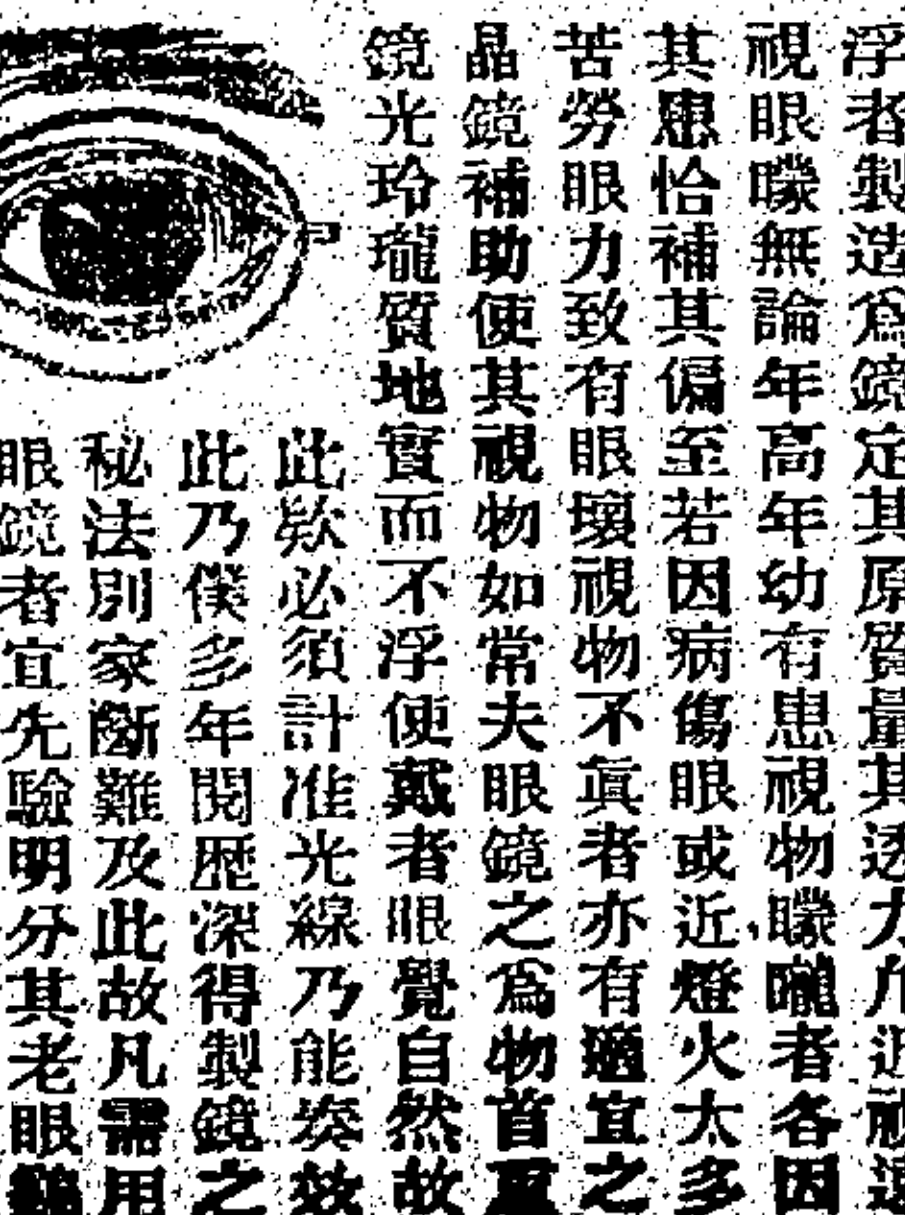 浮者製造爲鏡定其原質量其透力凡近視遠
視眼矇無論年高年幼有患視物矇矓者各因
其患恰補其偏至若因病傷眼或近燈火太多
苦勞眼力致有眼壞視物不眞者亦有適宜之
晶鏡補助使其視物如常夫眼鏡之爲物首重
鏡光玲瓏質地實而不浮使戴者眼覺自然故
此欵必須計准光線乃能奏效
此乃僕多年閱歷深得製鏡之
秘法別家斷難及此故凡需用
眼鏡者宜先驗明分其老眼